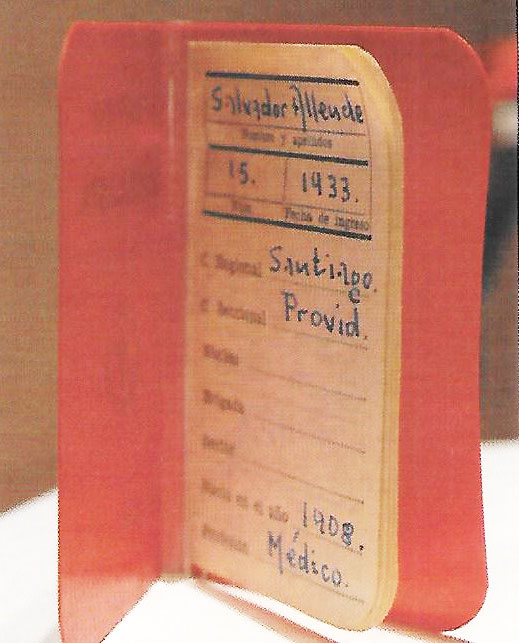 Salvador Allende
Nombre y apellidos
15. 1933.
Núm. Fecha de ingreso
C. Regional Santiago
C. Seccional Provid.
Núcleo
Brigada
Sector
Nació en el año 1908.
Profesión Médico.